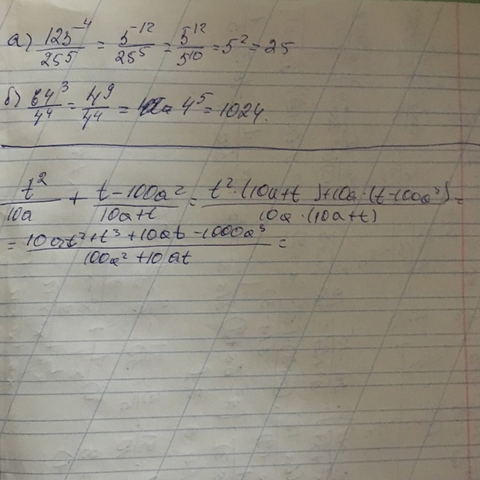 а) 125^-4 / 25^5 = 5^-12 / 25^5 = 5^12 / 5^10 = 5^2 = 25
б) 64^3 / 4^4 = 4^9 / 4^4 = 4^5 = 1024
t^2 / 10a + t-100a^2 / 10a+t = t^2·(10a+t)+10a·(t-100a^2) / 10a·(10a+t) =
= 10at^2+t^3+10at-1000a^3 / 100a^2+10at =